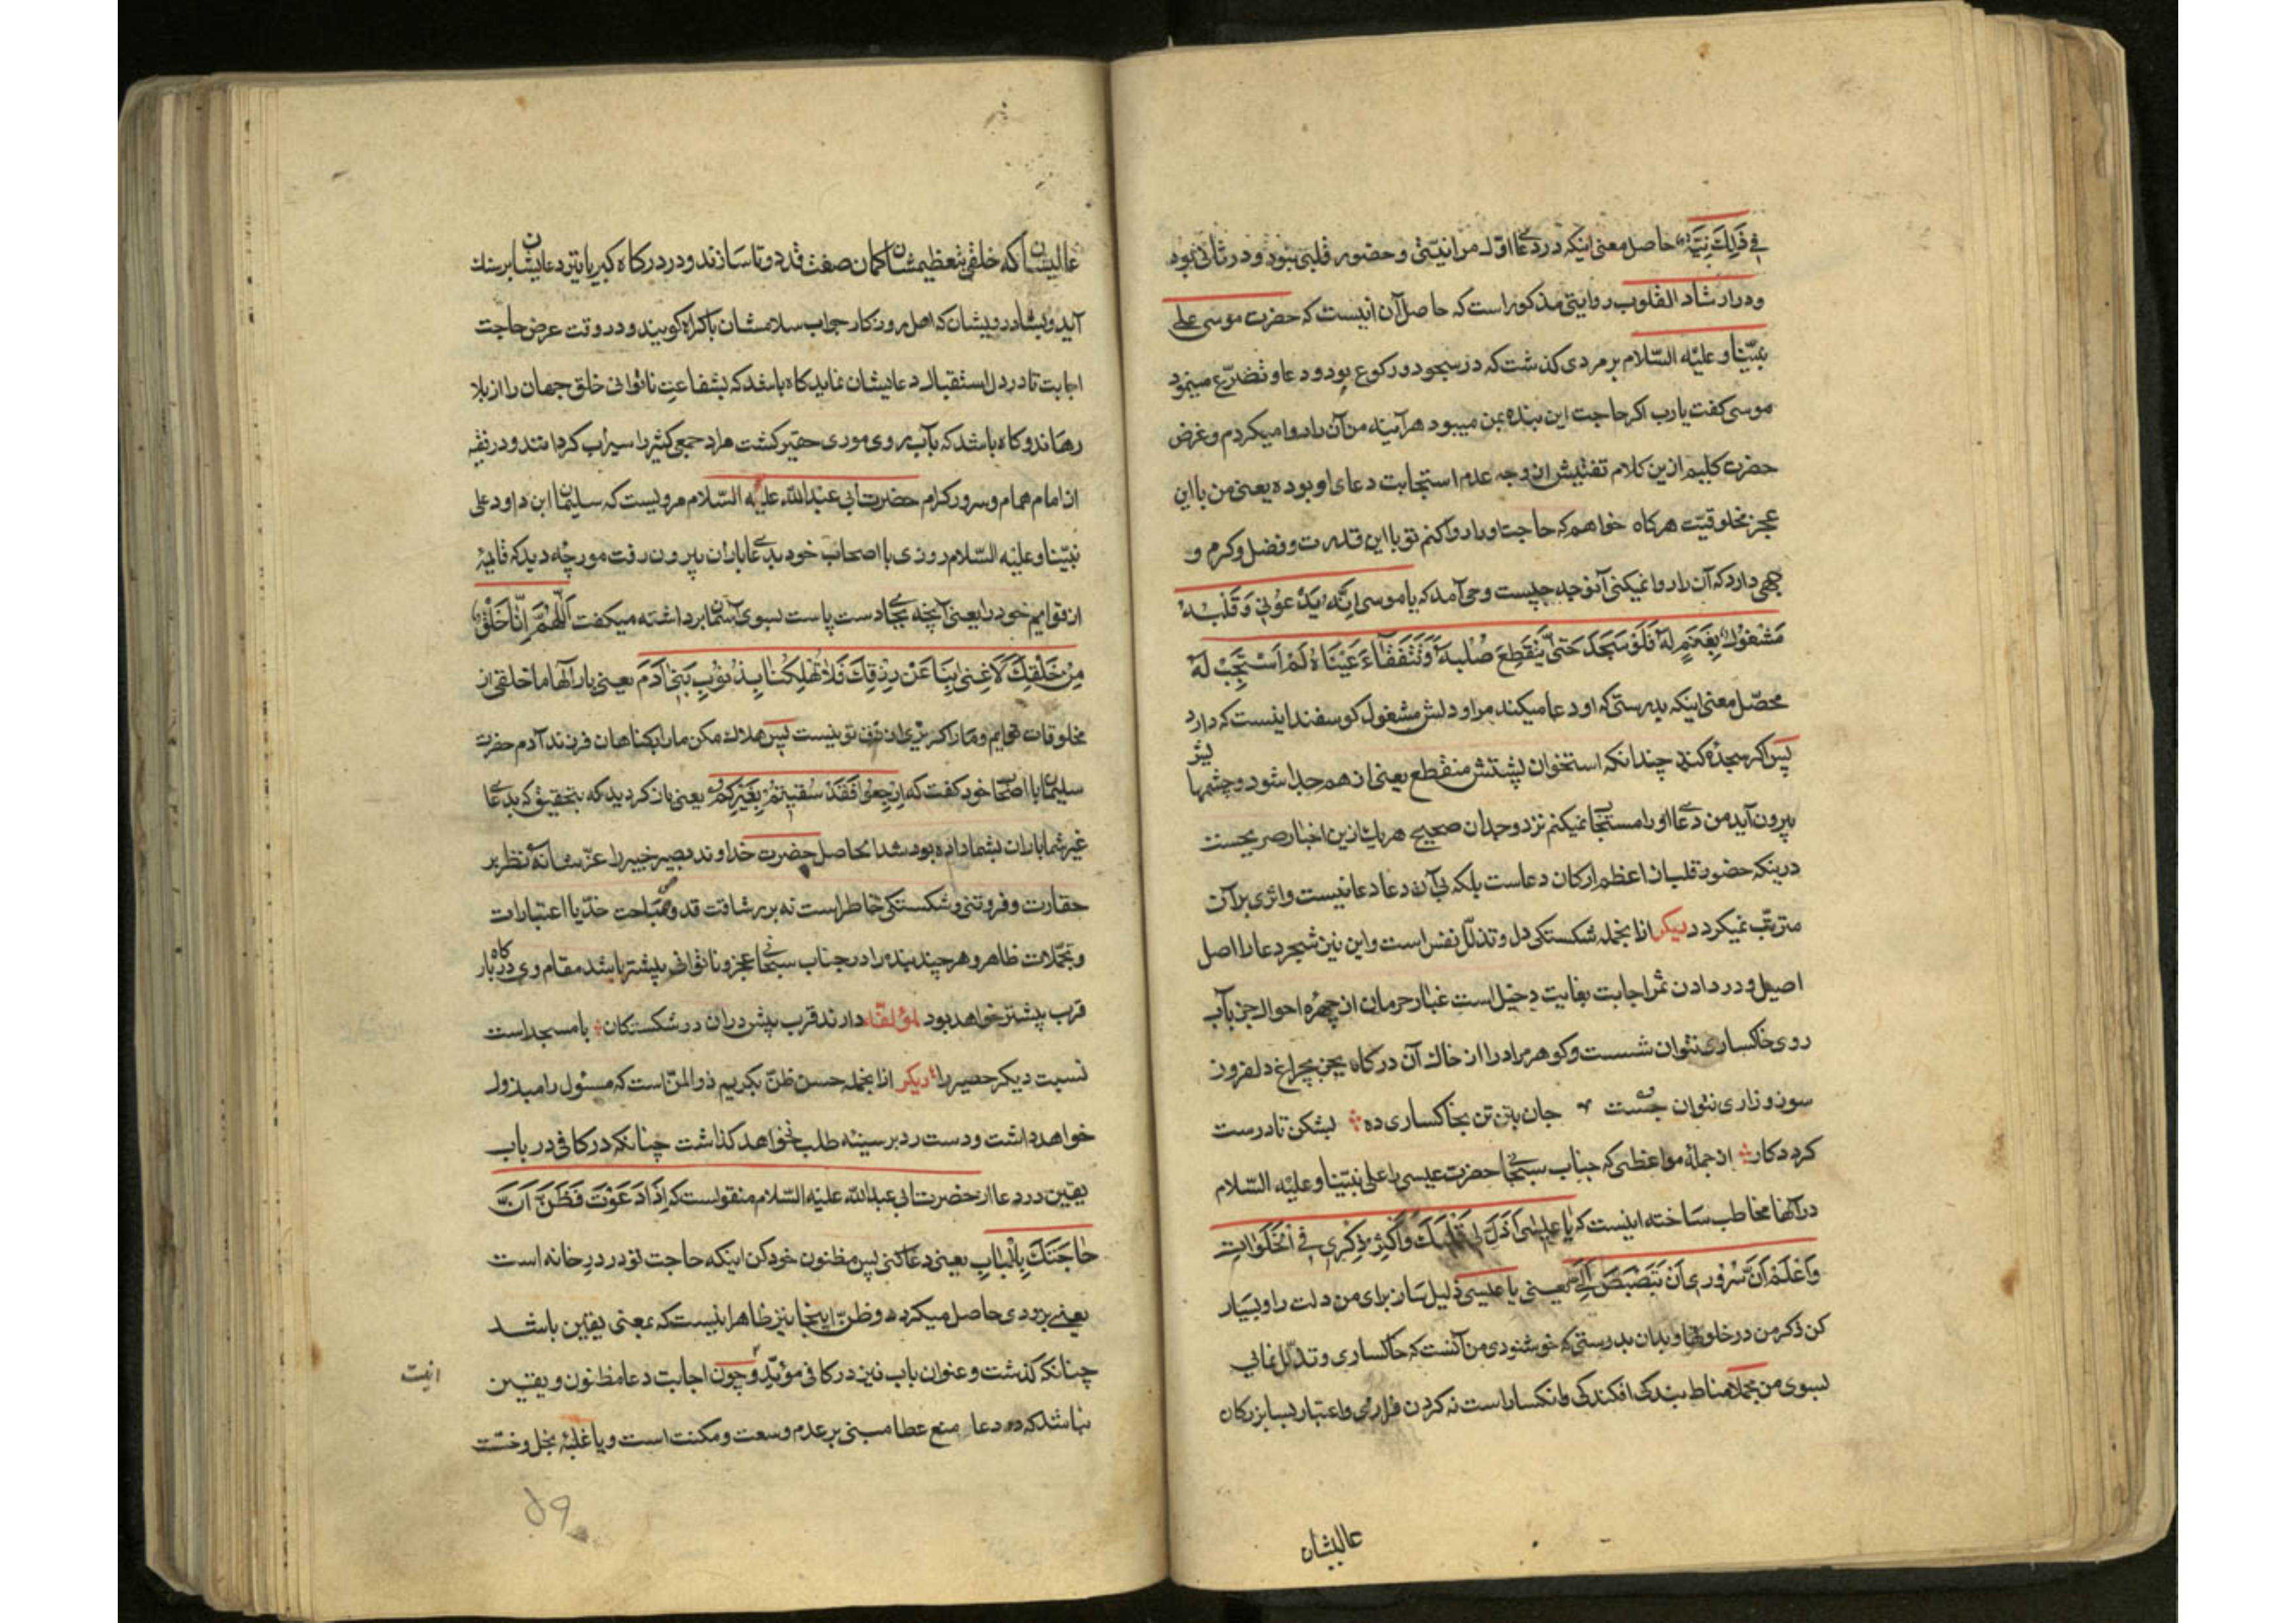 في ذلك نيّة حاصل معنی اینکه در دعای اوّل مرا نیّتی و حضور قلبی نبود و در ثانی بود
و در ارشاد القلوب روایتی مذکور است که حاصل آن اینست که حضرت موسی علی
نبیّنا و علیه السّلام بر مردی کذشت که در سجود و رکوع بود و دعا و تضرّع مینمود
موسی کفت یا رب اکر حاجت این بنده بمن میبود هر آینه من آن را روا میکردم و غرض
حضرت کلیم ازین کلام تفتیش از وجه عدم استجابت دعای او بوده یعنی من با این
عجز مخلوقیّت هرکاه خواهم که حاجت او را روا کنم تو با این قدرت و فضل و کرم و
جهی دارد که آن را روا نمیکنی آنوجه چیست وحی آمد که یا موسی انّه یدعونی و قلبه
مشغول بغنم له فلو سجد حتّی ینقطع صلبه و تتفقّأ عیناه لم استجب له
محصّل معنی اینکه بدرستی که او دعا میکند مرا و دلش مشغول کوسفند اینست که دارد
پس اکر سجده کند چندانکه استخوان پشتش منقطع یعنی از هم جدا شود و چشمهایش
بیرون آید من دعای او را مستجاب نمیکنم نزد وجدان صحیح هر یك ازین اخبار صریحست
درینکه حضور قلب از اعظم ارکان دعاست بلکه بی آن دعا دعا نیست و اثری بر آن
مترتّب نمیکردد دیکر از انجمله شکستکی دل و تذلّل نفس است و این نیز شجر دعا را اصل
اصیل و در دادن ثمر اجابت بغایت دخیل است غبار حرمان از چهره احوال جز بآب
روی خاکساری نتوان شست و کوهر مراد را از خاك آن درکاه بجز بچراغ دلفروز
سوز و زاری نتوان جست جان بتن بخاکساری ده بشکن تا درست
کردد کار از جمله مواعظی که جناب سبحانی حضرت عیسی را علی نبیّنا و علیه السّلام
در آنها مخاطب ساخته اینست که یا عیسی اذلّ لی قلبك و اکثر ذکری في الخلوات
و اعلم انّ سروري ان تبصبص الیّ یعنی یا عیسی ذلیل ساز برای من دلت را و بسیار
کن ذکر من در خلوتها و بدان بدرستی که خوشنودی من آنست که خاکساری و تذلّل نمایی
بسوی من مجملا مناط بندکی افکندکی و انکسار است نه کردن فرازی و اعتبار بسا بزرکان
عالیشان
عالیشان که خلق بتعظیمشان کمان صفت قد دوتا سازند و در درکاه کبریا تیر دعایشان بر سنك
آید و بسا درویشان که اهل روزکار جواب سلامشان باکراه کویند و در وقت عرض حاجت
اجابت تا در دل استقبال دعایشان نماید کاه باشد که بشفاعت ناتوانی خلق جهان را از بلا
رهاند و کاه باشد که بآب روی موری حقیر کشت مراد جمعی کثیر را سیراب کرداند و در فقیه
از امام همام و سرور کرام حضرت ابی عبدالله علیه السّلام مرویست که سلیمان ابن داود علی
نبیّنا و علیه السّلام روزی با اصحاب خود بدعای باران بیرون رفت مورچه دید که قایمهٔ
از قوایم خود را یعنی آنچه بجای دست پاست بسوی آسمان برداشته میکفت اللّهمّ انّا خلق
من خلقك لا غنی بنا عن رزقك فلا تهلکنا بذنوب بنی آدم یعنی بار آلها ما خلقی از
مخلوقات توایم و ما را کریزی از رزق تو نیست پس هلاك مکن ما را بکناهان فرزند آدم حضرت
سلیمان با اصحاب خود کفت که ارجعوا فقد سقیتم بغیرکم یعنی باز کردید که بتحقیق که بدعای
غیر شما باران بشما داده بود شد الحاصل حضرت خداوند بصیر خبیر را عزّ شانه نظر بر
حقارت و فروتنی و شکستکی خاطر است نه بر رشاقت قد و صباحت خدّ یا اعتبارات
و تجمّلات ظاهر و هر چند بنده را در جناب سبحانی عجز و ناتوانی بیشتر باشد مقام وی در بارکاه
قرب بیشتر خواهد بود لمؤلفه دارند قرب بیش در آن در شکستکان با مسجد است
نسبت دیکر حصیر را دیکر از انجمله حسن ظنّ بکریم ذو المنّ است که مسئول را مبذول
خواهد داشت و دست رد بر سینه طلب نخواهد کذاشت چنانکه در کافی در باب
یقین در دعا از حضرت ابی عبدالله علیه السّلام منقولست که اذا دعوت فظنّ انّ
حاجتك بالباب یعنی دعا کنی پس مظنون خود کن اینکه حاجت تو در در خانه است
یعنی بزودی حاصل میکردد و ظنّ اینجا نیز ظاهر اینست که بمعنی یقین باشد
چنانکه کذشت و عنوان باب نیز در کافی مؤیّد و چون اجابت دعا مظنون و یقین
نباشد که در دعا منع عطا مبنی بر عدم وسعت و مکنت است و یا غلبهٔ بخل و خسّت
۵۹